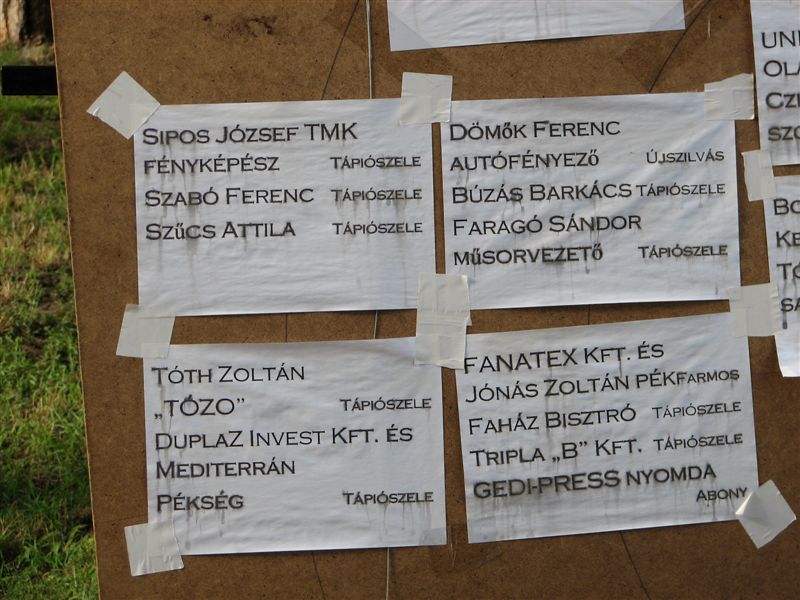 SIPOS JÓZSEF TMK
FÉNYKÉPÉSZ TÁPIÓSZELE
SZABÓ FERENC TÁPIÓSZELE
SZŰCS ATTILA TÁPIÓSZELE
DÖMŐK FERENC
AUTÓFÉNYEZŐ ÚJSZILVÁS
BÚZÁS BARKÁCS TÁPIÓSZELE
FARAGÓ SÁNDOR
MŰSORVEZETŐ TÁPIÓSZELE
TÓTH ZOLTÁN
„TŐZO” TÁPIÓSZELE
DUPLAZ INVEST KFT. ÉS
MEDITERRÁN
PÉKSÉG TÁPIÓSZELE
FANATEX KFT. ÉS
JÓNÁS ZOLTÁN PÉK FARMOS
FAHÁZ BISZTRÓ TÁPIÓSZELE
TRIPLA „B” KFT. TÁPIÓSZELE
GEDI-PRESS NYOMDA
ABONY